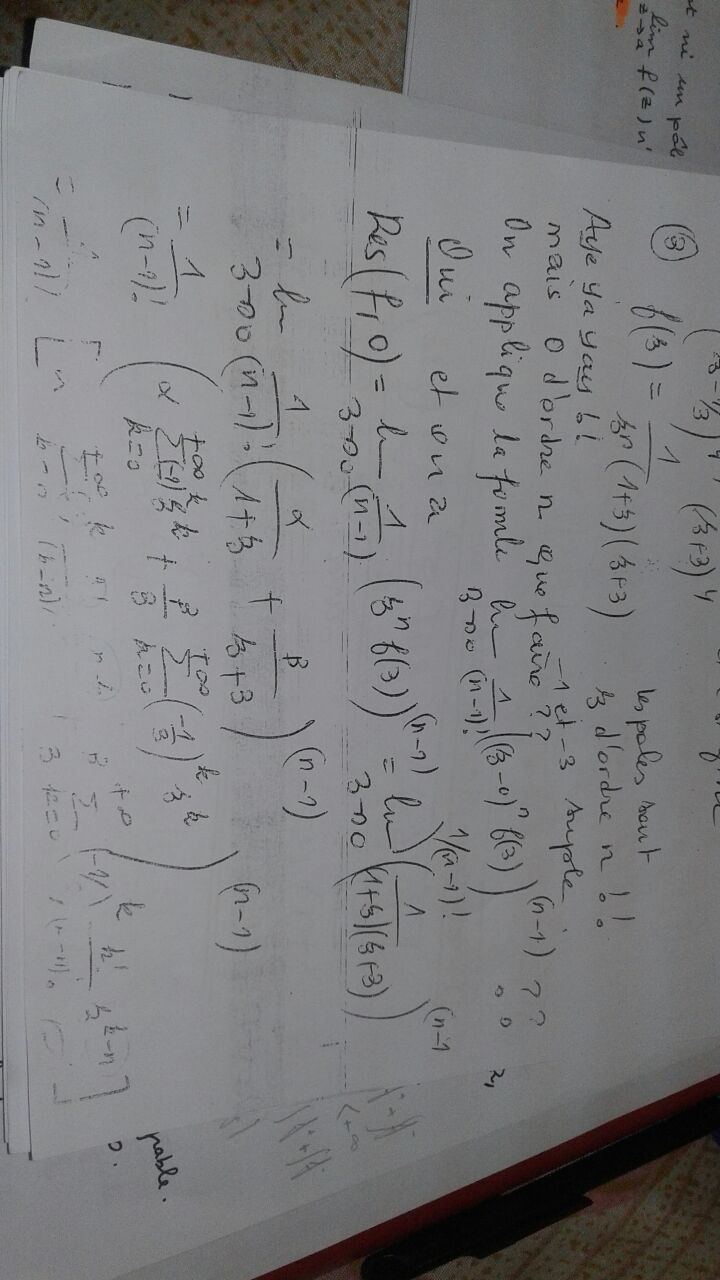 t ni un pôl
lim f(z) n'
z→a
(z-1/3)^4 (z+3)^4
③ f(z) = 1 / (z^n (1+z)(z+3)) les poles sont
z d'ordre n !!
Aye ya yay !!
mais 0 d'ordre n que faire ?? -1 et -3 simple.
On applique la formle lim_{z→0} 1/(n-1)! ((z-0)^n f(z))^(n-1) ??
Oui et on a
Res(f, 0) = lim_{z→0} 1/(n-1) (z^n f(z))^(n-1) = lim_{z→0} 1/(n-1)! (1/((1+z)(z+3)))^(n-1
= lim_{z→0} 1/(n-1)! (α/(1+z) + β/(z+3))^(n-1)
= 1/(n-1)! (α ∑_{k=0}^{+∞} (-1)^k z^k + β/3 ∑_{k=0}^{+∞} (-1/3)^k z^k)^(n-1)
= 1/(n-1)! [ +∞ ∑ k β/3 ∑_{k=0}^{+∞} k k! z^{k-n} ]
pable.
0.